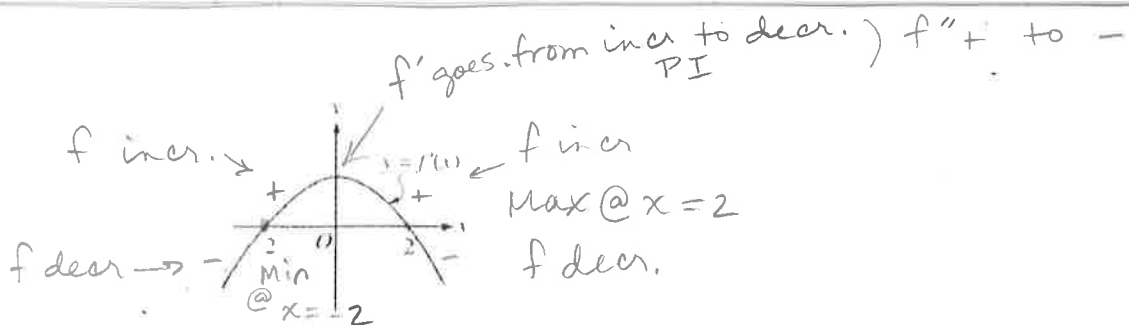 f' goes from incr to decr. ) f" + to -
PI
f incr.
y = f'(x)
f incr
+
+
Max @ x = 2
-2
O
2
x
f decr
-
-
f decr.
Min
@ x = -2